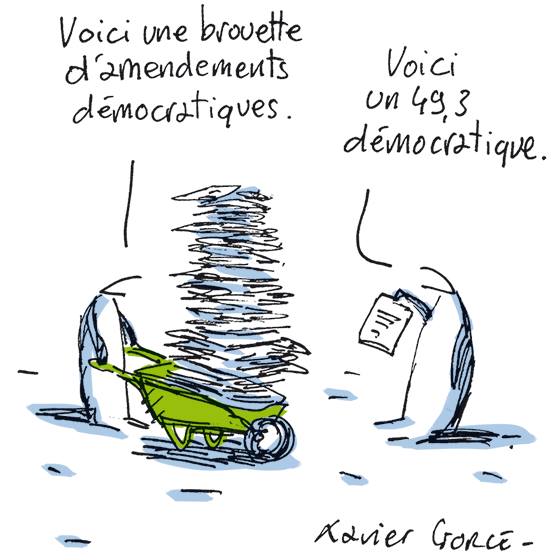 Voici une brouette
d'amendements
démocratiques.
Voici
un 49,3
démocratique.
Xavier GORCE -